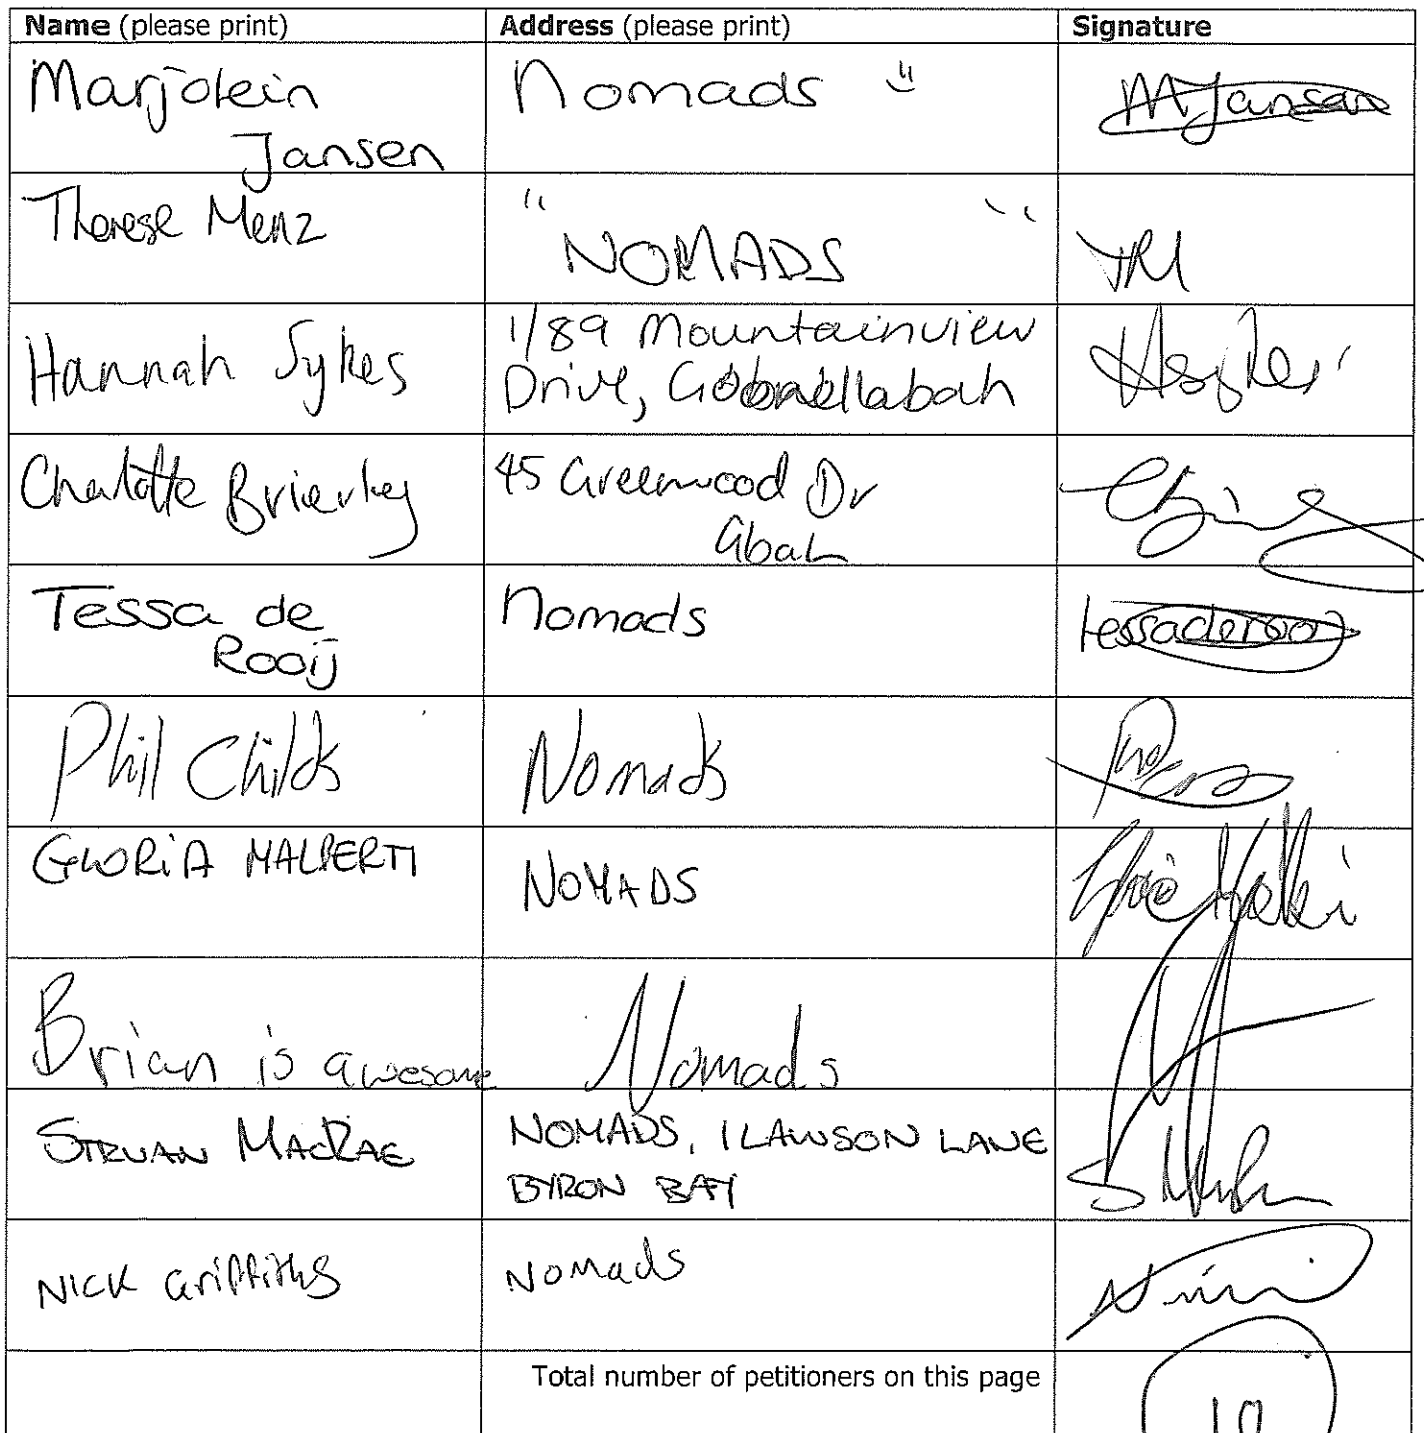 Name (please print) Address (please print) Signature
Marjolein Nomads M Jansen
Jansen
Therese Menz " NOMADS " TM
Hannah Sykes 1/89 Mountainview
Drive, Goonellabah
Charlotte Brierley 45 Greenwood Dr
Gbah
Tessa de Nomads tessaderooij
Rooij
Phil Childs Nomads
GLORIA MALPERTI NOMADS
Brian is awesome Nomads
STRUAN MACRAE NOMADS, 1 LAWSON LANE
BYRON BAY
NICK Griffiths Nomads
Total number of petitioners on this page 10